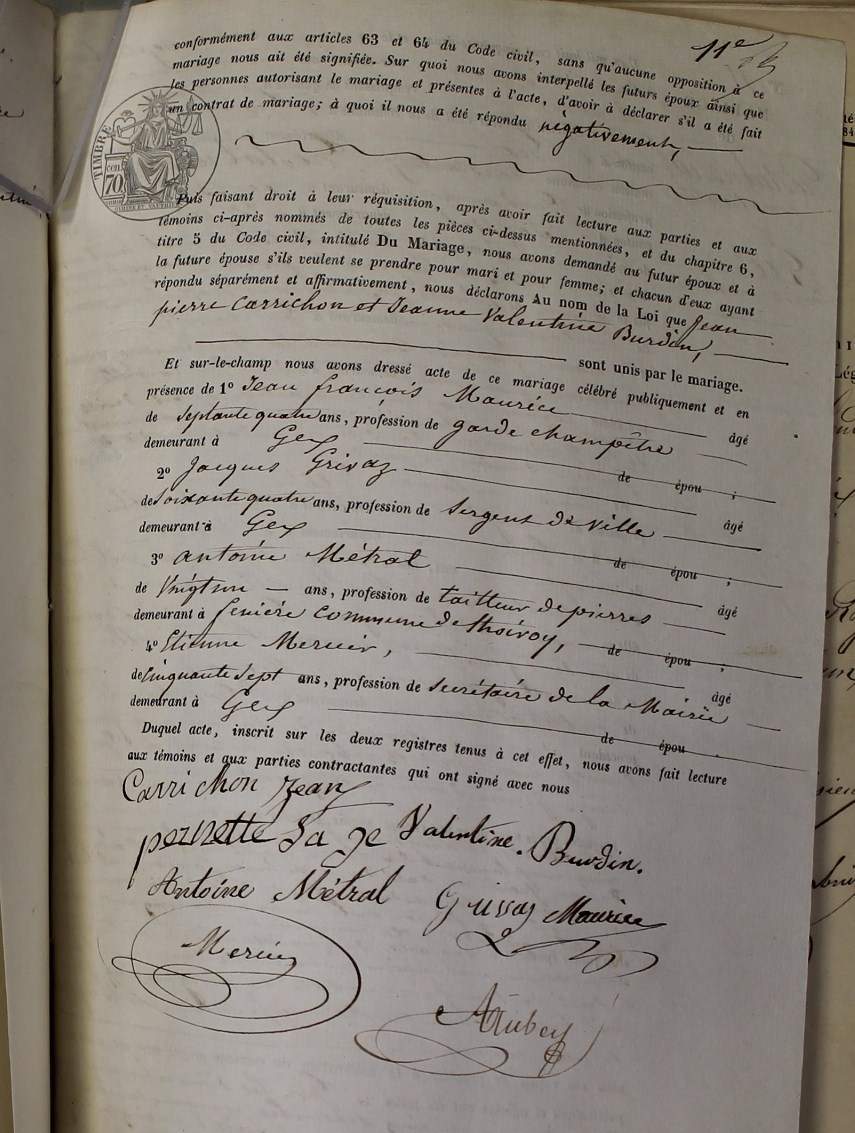 11e
conformément aux articles 63 et 64 du Code civil, sans qu'aucune opposition à ce
mariage nous ait été signifiée. Sur quoi nous avons interpellé les futurs époux ainsi que
les personnes autorisant le mariage et présentes à l'acte, d'avoir à déclarer s'il a été fait
un contrat de mariage; à quoi il nous a été répondu négativement,
TIMBRE
70
Puis faisant droit à leur réquisition, après avoir fait lecture aux parties et aux
témoins ci-après nommés de toutes les pièces ci-dessus mentionnées, et du chapitre 6,
titre 5 du Code civil, intitulé Du Mariage, nous avons demandé au futur époux et à
la future épouse s'ils veulent se prendre pour mari et pour femme; et chacun d'eux ayant
répondu séparément et affirmativement, nous déclarons Au nom de la Loi que Jean
pierre Carrichon et Jeanne Valentine Burdin,
sont unis par le mariage.
Et sur-le-champ nous avons dressé acte de ce mariage célébré publiquement et en
présence de 1º Jean françois Maurice âgé
de Septante quatre ans, profession de garde champêtre
demeurant à Gex de épou ;
2º Jacques Grivaz âgé
de Soixante quatre ans, profession de Sergent de ville
demeurant à Gex de épou ;
3º antoine Métral âgé
de Vingt un ans, profession de tailleur de pierres
demeurant à fenière commune de thoiroy, de épou ;
4º Etienne Mercier, âgé
de Cinquante Sept ans, profession de Secrétaire de la Mairie
demeurant à Gex de épou .
Duquel acte, inscrit sur les deux registres tenus à cet effet, nous avons fait lecture
aux témoins et aux parties contractantes qui ont signé avec nous
Carrichon Jean
pernette Sage Valentine. Burdin.
Antoine Métral Maurice
Mercier